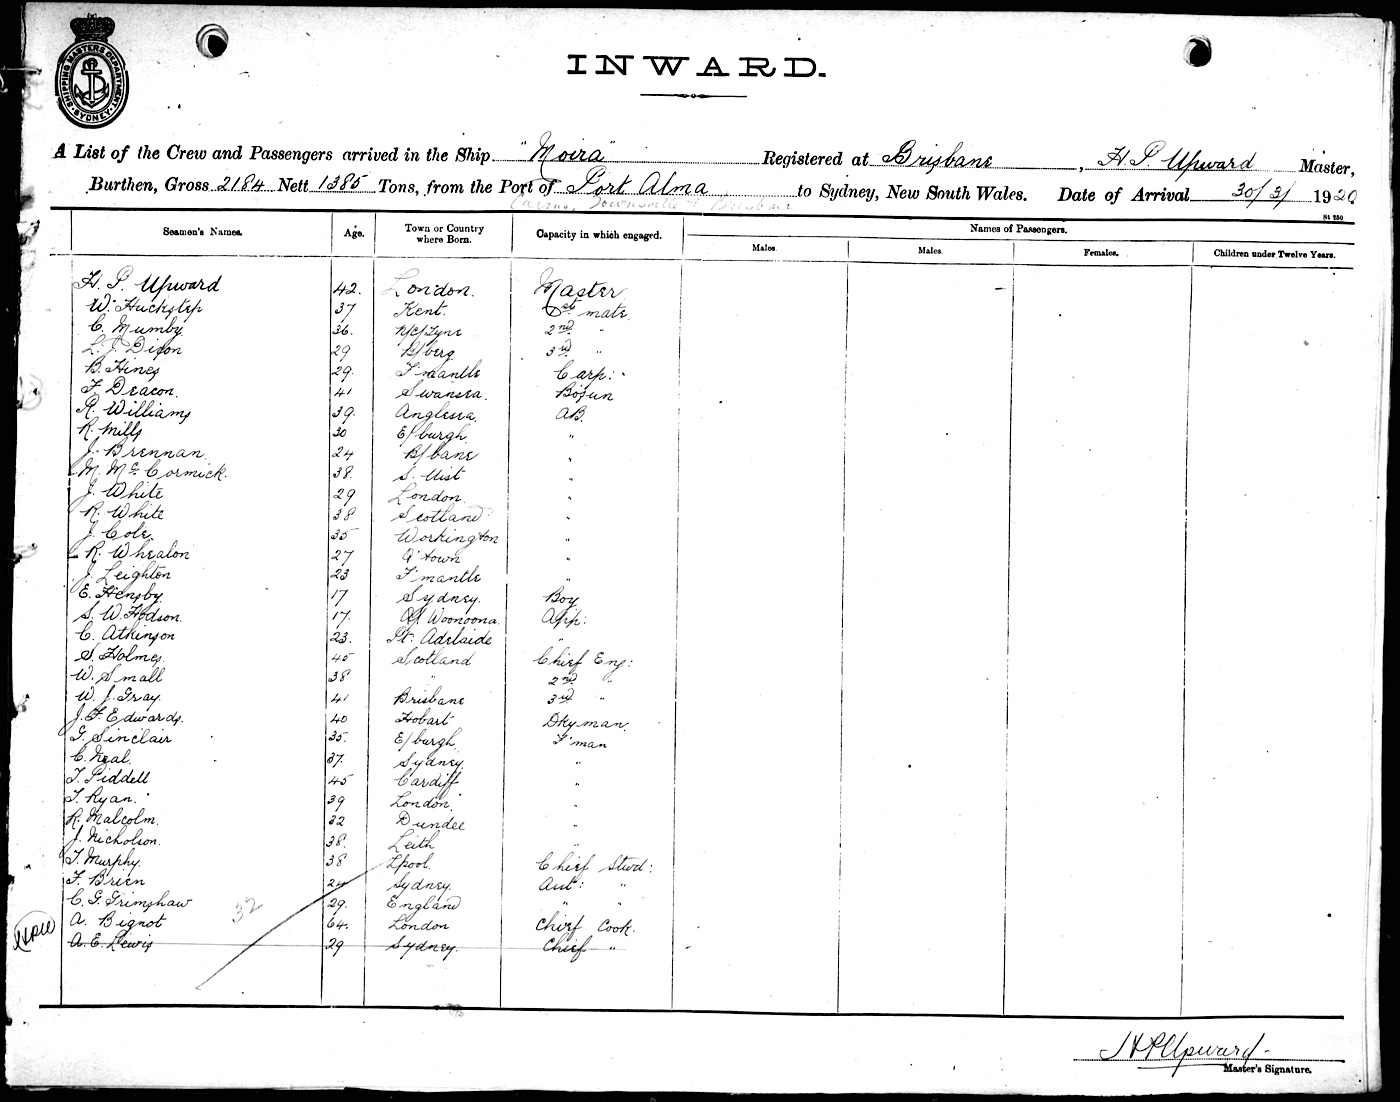 SHIPPING MASTERS DEPARTMENT SYDNEY
INWARD.
A List of the Crew and Passengers arrived in the Ship "Moira" Registered at Brisbane, H. P. Upward Master,
Burthen, Gross 2184 Nett 1385 Tons, from the Port of Port Alma to Sydney, New South Wales. Date of Arrival 30/3/1920
Cairns, Townsville & Brisbane
St 250
Seamen's Names. Age. Town or Country where Born. Capacity in which engaged. Names of Passengers.
Males. Males. Females. Children under Twelve Years.
H. P. Upward 42. London. Master
W. Huckstep 37 Kent. 1st mate.
C. Mumby 36. N/C/Tyne 2nd "
L. J. Dixon 29 B/berg 3rd "
B. Hines 29. F'mantle Carp:
F. Deacon. 41 Swansea. Bosun
R. Williams 39. Anglesea. AB.
R. Mills 30 E/burgh. "
J. Brennan. 24 B/bane "
M. McCormick. 38. S. Uist "
J. White 29 London. "
R. White 38 Scotland "
J. Cole. 35 Workington "
R. Whealon 27 Q'town "
J. Leighton 23 F'mantle "
E. Hensby. 17 Sydney. Boy
S. W. Hodson. 17. Woonoona. App:
C. Atkinson 23. Pt. Adelaide "
S. Holmes. 45 Scotland Chief Eng:
W. Small 38 " 2nd "
W. J. Gray. 41 Brisbane 3rd "
J. F. Edwards. 40 Hobart Dkyman.
G. Sinclair 35. E/burgh. F'man
C. Neal. 37. Sydney. "
T. Piddell 45 Cardiff "
T. Ryan. 39 London "
R. Malcolm. 32 Dundee "
J. Nicholson. 38. Leith "
T. Murphy. 38 Lpool. Chief Stwd:
F. Brien 24 Sydney. "
C. G. Grimshaw 29. England " "
32
A. Bignot 64. London Chief Cook.
HPU
A. E. Lewis 29 Sydney. Chief "
H P Upward
Master's Signature.